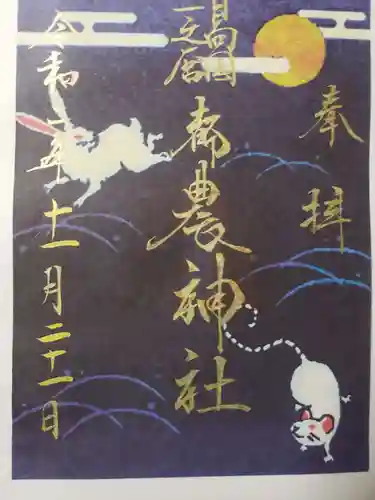 奉拝
日向國
一之宮
都農神社
令和二年十一月二十一日